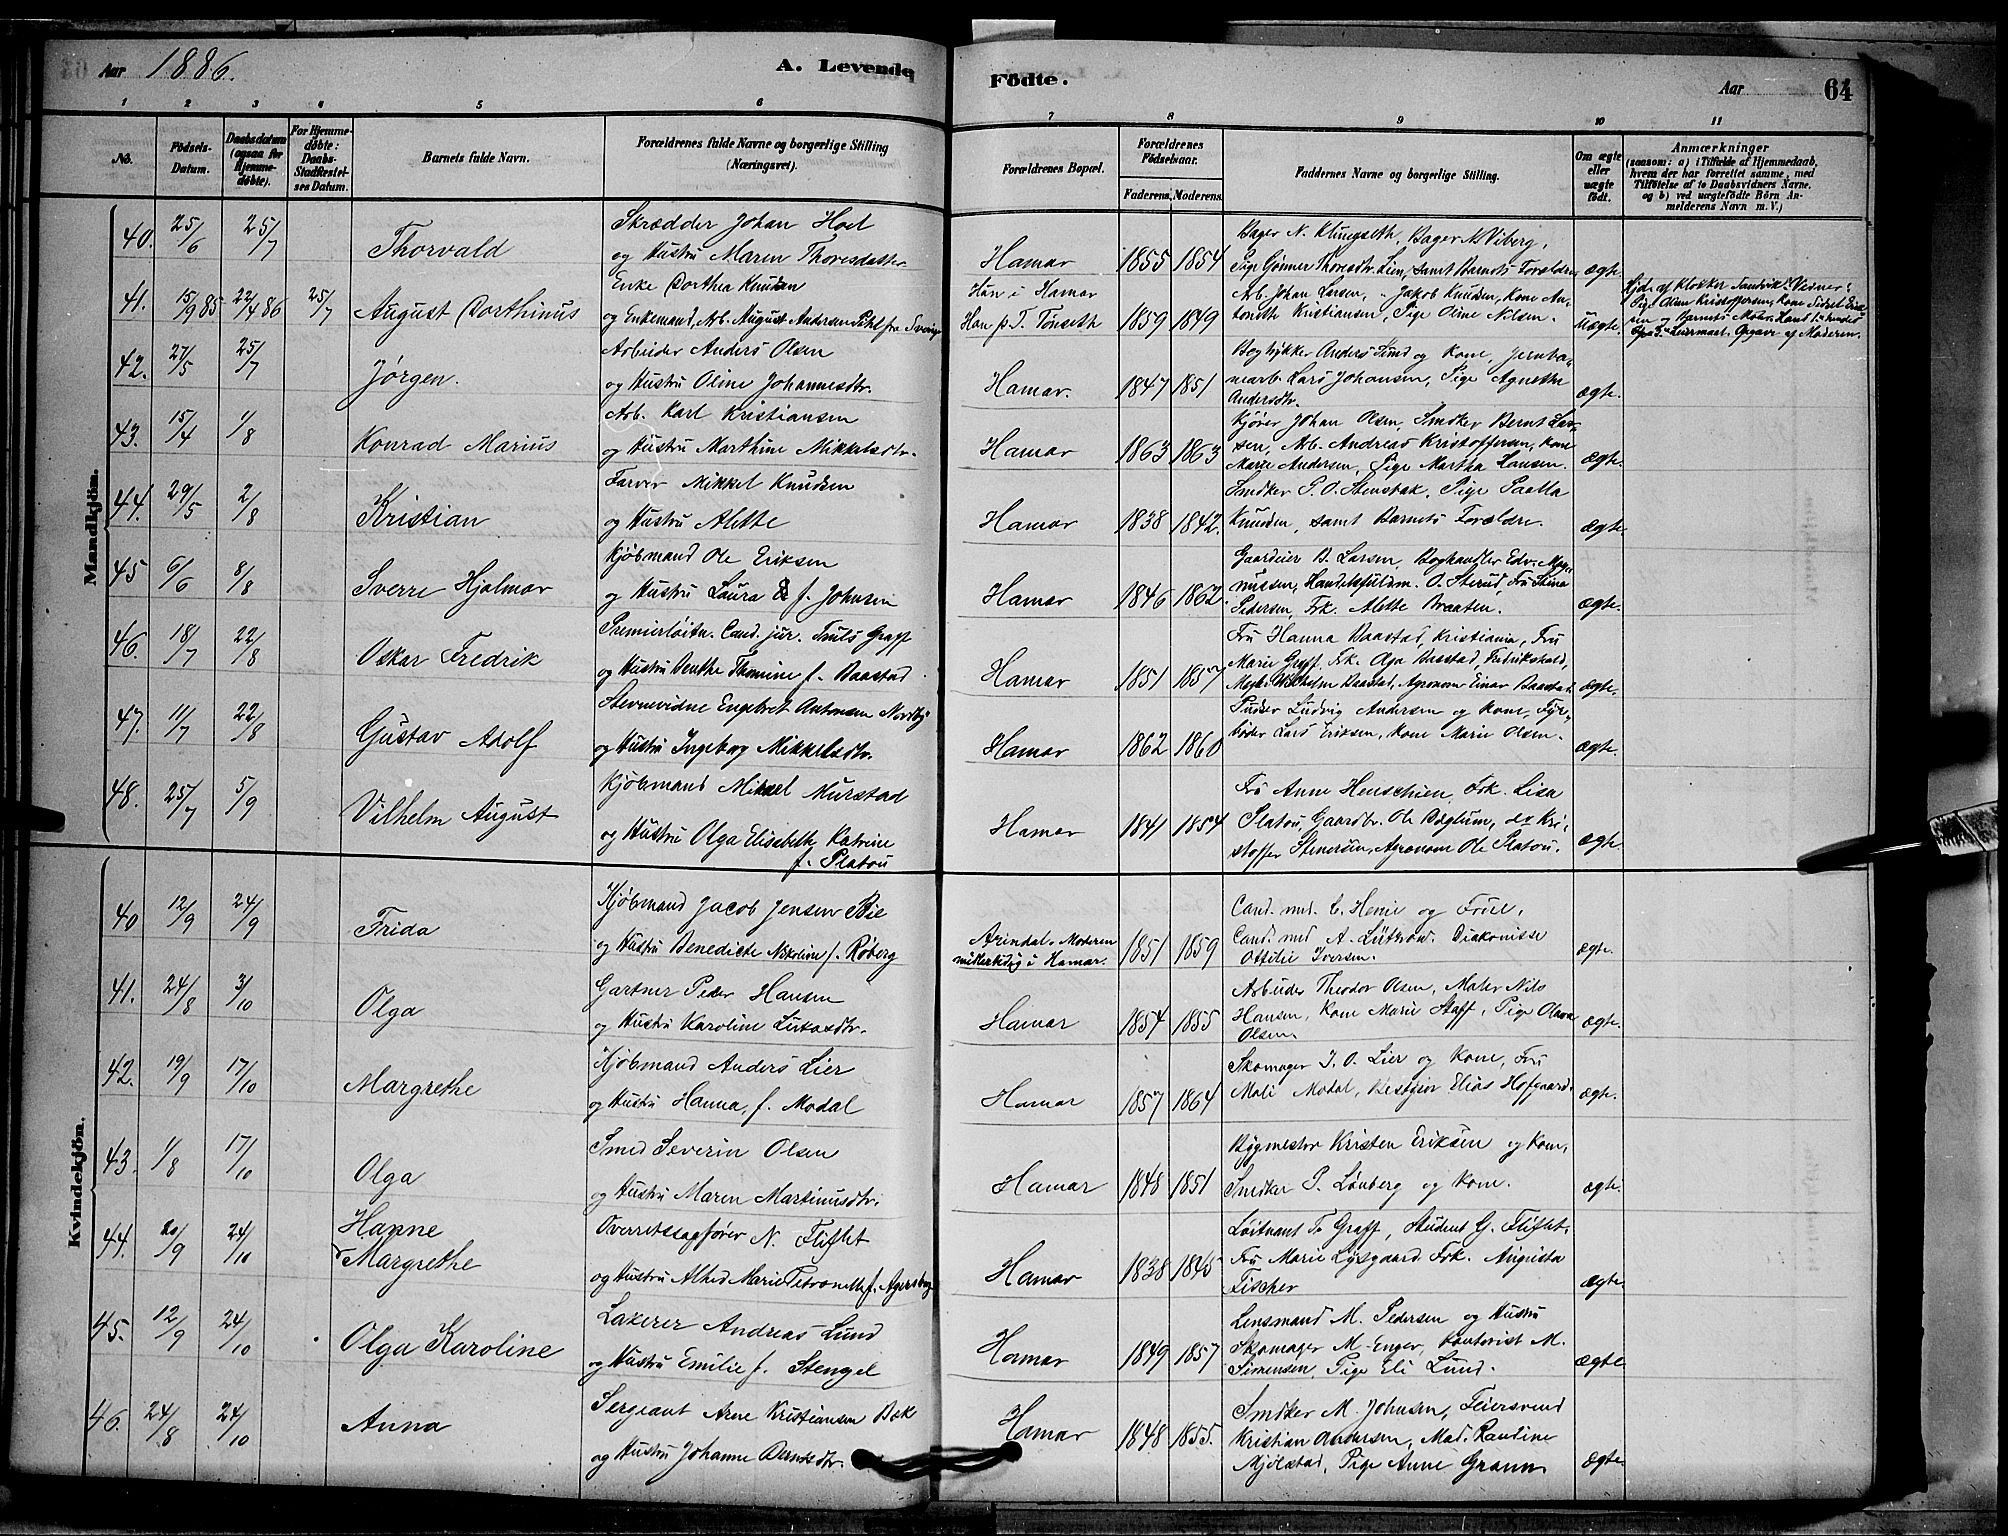 Aar 1886. A. Levende Födte. Aar 64
1 2 3 4 5 6 7 8 9 10 11
No. Födsels-Datum. Daabsdatum (ogsaa for Hjemmedøbte). For Hjemmedøbte: Daabs-Stadfæstelses Datum. Barnets fulde Navn. Forældrenes fulde Navne og borgerlige Stilling (Næringsvei). Forældrenes Bopæl. Forældrenes Födselsaar. Faderens. Moderens. Faddernes Navne og borgerlige Stilling. Om ægte eller uægte født. Anmærkninger
(saasom: a) i Tilfælde af Hjemmedaab, hvem der har forrettet samme, med Tilføielse af to Daabsvidners Navne. og b) ved uægtefødte Börn Anmelderens Navn m. V.)
Mandkjön.
40. 25/6 25/7 Thorvald
Skrædder Johan Hoel
og Hustru Maren Thoresdatter
Hamar 1855 1854
Bager N. Klungseth, Bager N. Viberg,
Pige Gønner Thoresdtr. Lien, samt Barnets Forældre
ægte
41. 15/9 85 22/4 86 25/7 August Dorthinus
Enke Dorthea Knudsen
og Enkemand, Arb. August Andersen fra Sverige
Hun i Hamar
Han p.T. Tønseth 1859 1849
Arb. Johan Larsen, Jakob Knudsen, Kone An-
tonette Kristiansen, Pige Oline Nilsen.
uægte.
42. 27/5 25/7 Jørgen.
Arbeider Anders Olsen
og Hustru Oline Johannesdtr.
Hamar. 1847 1851
Bogtrykker Anders Lund og Kone, Jernba-
nearb. Lars Johansen, Pige Agnethe
Andersdtr.
ægte.
43. 15/4 1/8 Konrad Marius
Arb. Karl Kristiansen
og Hustru Marthine Mikkelsdtr.
Hamar 1863 1863
Kjører Johan Olsen, Smdker Bernt Lar-
sen, Arb. Andreas Kristoffersen, Kone
Marie Andersen, Pige Martha Hansen.
ægte.
44. 29/5 2/8 Kristian
Farver Mikkel Knudsen
og Hustru Alette
Hamar 1838 1842.
Smdker P. O. Stensbak, Pige
Knudsen, samt Barnets Forældre.
ægte
45 6/6 8/8 Sverre Hjalmar
Kjøbmand Ole Eriksen
og Hustru Laura f. Johnsen
Hamar 1846 1862.
Gaardeier B. Larsen, Boghandler Edv. Mag-
nussen, Handelsfuldm. O. Sterud, Fru Stina
Pedersen, Frk. Alette Braaten.
ægte.
46. 18/7 22/8 Oskar Fredrik
Premierløitn. Cand. jur. Truls Graff
og Hustru Benthe Thomine f. Baastad.
Hamar 1851 1857
Fru Hanna Baastad, Kristiania, Fru
Marie Graff, Frk. Aga Baastad, Fredrikshald,
Wilhelm Baastad, Agronom Einar Baastad.
ægte.
47. 11/7 22/8 Gustav Adolf
Stevnevidne Engebret Antonsen Nordby
og Hustru Ingeborg Mikkelsdtr.
Hamar 1862 1860
Pudser Ludvig Andersen og Kone, Fyr-
bøder Lars Eriksen, Kone Marie Olsen.
ægte.
48. 25/7 5/9 Vilhelm August
Kjøbmand Mikael Kurstad
og Hustru Olga Elisabeth Katrine
f. Platou
Hamar 1841 1854
Fru Anne Henschien, Frk. Lisa
Platou, Gaardbr. Ole Bøglum, Kri-
stoffer Stenersen, Agronom Ole Platou.
ægte.
Kvindekjön.
40 12/9 24/9 Frida
Kjøbmand Jacob Jensen Bie
og Hustru Benedicte Nikoline f. Røberg
Arendal. Moderen
midlertidig i Hamar. 1851 1859
Cand. med. C. Henie og Frue,
Cand. med A. Lütkow. Diakonisse
Ottilie Iversen.
ægte.
41. 24/8 3/10 Olga
Gartner Peder Hansen
og Hustru Karoline
Hamar 1854 1855
Arbeider Theodor Olsen, Maler Nils
Hansen, Kone Marie Staff, Pige Olava
Olsen.
ægte.
42. 19/9 17/10 Margrethe
Kjøbmand Anders Lier
og Hustru Hanna, f. Modal
Hamar 1857 1864
Skomager J. O. Lier og Kone, Fru
Mali Modal, Elias Hofgaard.
ægte.
43. 1/8 17/10 Olga
Smed Severin Olsen
og Hustru Maren Martinusdtr.
Hamar 1848 1851
Bygmester Kristen Eriksen og Kone,
Smedker P. Lønberg og Kone.
ægte
44. 20/9 24/10 Hanne
Margrethe
Overretssagfører N. Fliflet
og Hustru Alhed Marie Petronelle f. Agersborg
Hamar 1838 1845
Løitnant T. Graff, Student G. Fliflet,
Fru Marie Lysgaard Frk. Augusta
Fischer
ægte.
45. 12/9 24/10 Olga Karoline
Lakerer Andreas Lund
og Hustru Emilie f. Stengel
Hamar 1849 1857
Lensmand M. Pedersen og Hustru
Skomager M. Enger, Kontorist M.
Simensen, Pige Eli Lund.
ægte
46. 24/8 24/10 Anna
Sergeant Arne Kristiansen Bæk
og Hustru Johanne Berntsdtr.
Hamar 1848 1855.
Smdker M. Johnsen, Feiersvend
Kristian Andersen, Mad. Randine
Mjølstad, Pige Anne Grønn
ægte